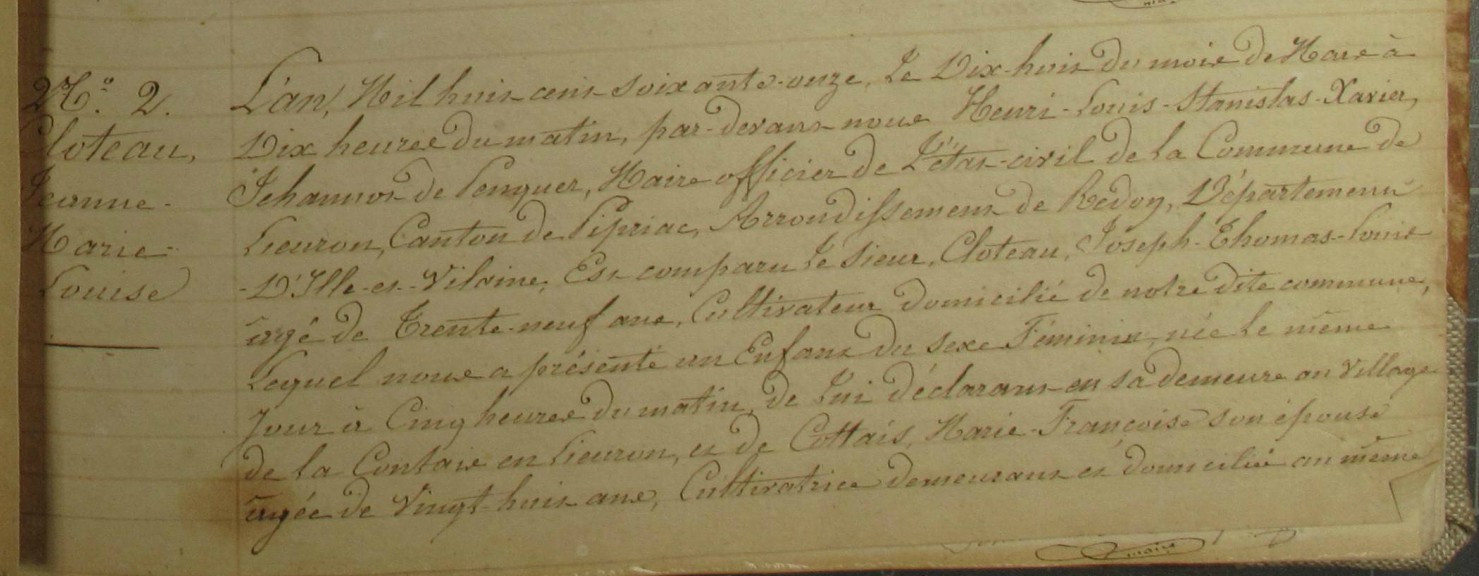 N.° 2.
Cloteau,
Jeanne-
Marie-
Louise
L'an, Mil huit cent soixante-onze, Le Dix-huit du mois de Mars à
Dix heures du matin, par-devant nous Henri-Louis-Stanislas-Xavier,
Jehannot de Penquer, Maire officier de L'état-civil de la Commune de
Lieuron, Canton de Pipriac, Arrondissement de Redon, Département
-D'Ille-et-Vilaine, Est comparu le sieur, Cloteau, Joseph-Thomas-Louis
âgé de Trente-neuf ans, Cultivateur domicilié de notre dite commune,
Lequel nous a présenté un Enfant du sexe Féminin, née le même
Jour à Cinq heures du matin, de Lui déclarant en sa demeure au Village
de la Contais en Lieuron, et de Cottais, Marie-Françoise son épouse
âgée de Vingt-huit ans, Cultivatrice demeurant et domiciliée au même
maire